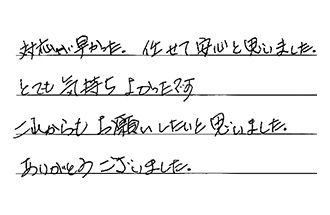 対応が早かった。任せて安心と思いました。
とても気持ちよかったです
これからもお願いしたいと思いました。
ありがとうございました。